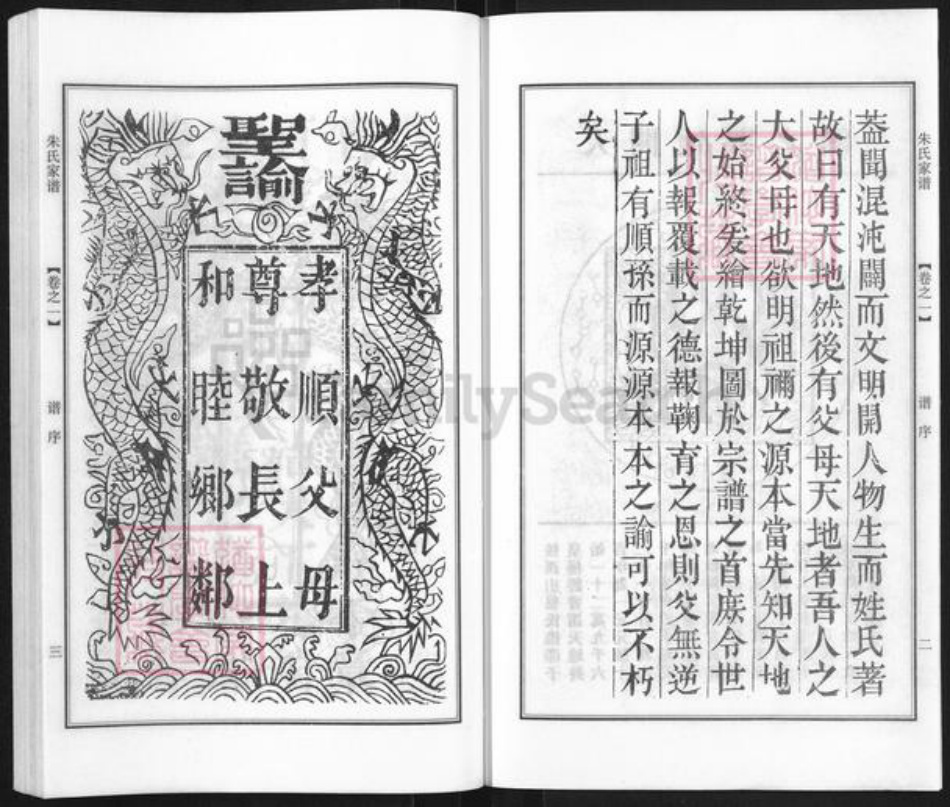 朱氏家谱
【卷之一】
谱序
二
蓋聞混沌闢而文明開人物生而姓氏著
故曰有天地然後有父母天地者吾人之
大父母也欲明祖禰之源本當先知天地
之始終爰繪乾坤圖於宗譜之首庻令世
人以報覆載之德報鞠育之恩則父無逆
子祖有順孫而源源本本之諭可以不朽
矣
聖諭
孝順父母
尊敬長上
和睦鄉鄰
朱氏家谱
【卷之一】
谱序
三